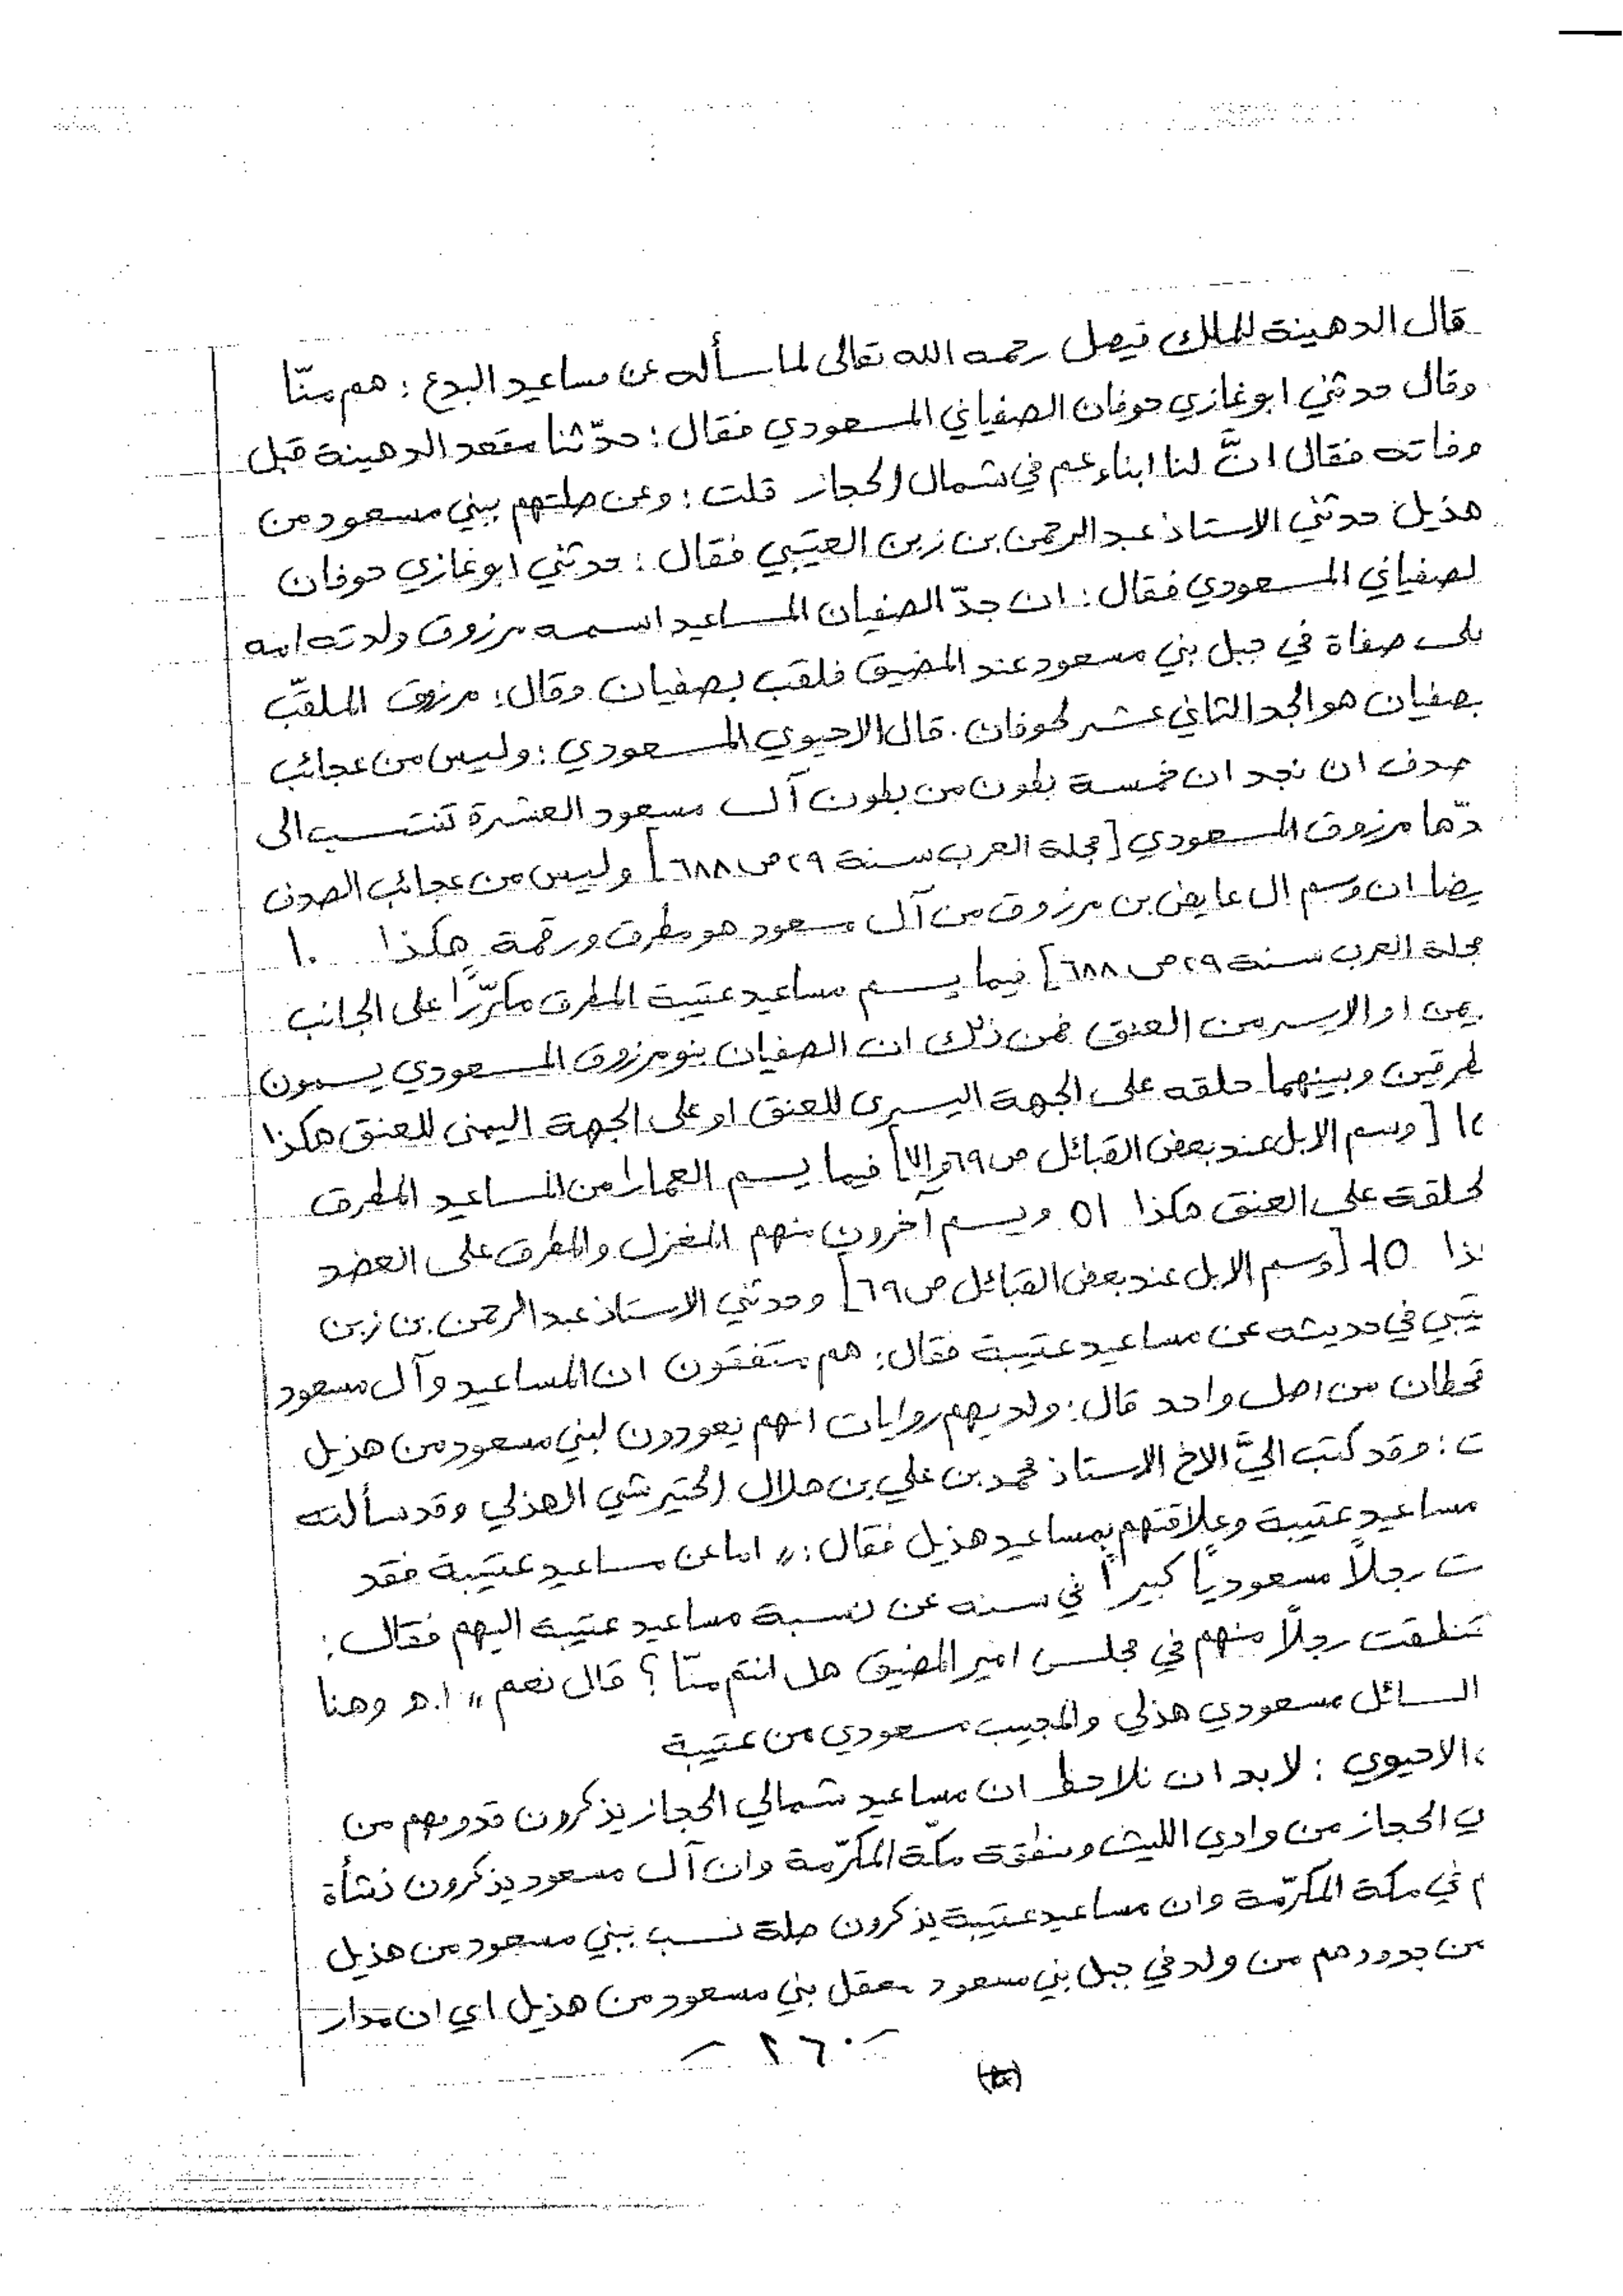 قال الدهينة للملك فيصل رحمه الله تعالى لما سأله عن مساعيد البدع : هم منّا
وقال حدثني ابو غازي حوفان الصفياني المسعودي فقال : حدّثنا مقعد الدهينة قبل
وفاته فقال انَّ لنا ابناء عم في شمال الحجاز قلت : وعن صلتهم ببني مسعود من
هذيل حدثني الاستاذ عبد الرحمن بن زبن العتيبي فقال : حدثني ابو غازي حوفان
لصفياني المسعودي فقال : ان جدّ الصفيان المساعيد اسمه مرزوق ولدته امه
لى صفاة في جبل بني مسعود عند المضيق فلقب بصفيان وقال : مرزوق الملقّب
بصفيان هو الجد الثاني عشر لحوفان . قال الاحيوي المسعودي : وليس من عجائب
صدف ان نجد ان خمسة بطون من بطون آل مسعود العشرة تنتسب الى
دّها مرزوق المسعودي [مجلة العرب سنة ٢٩ ص ٦٨٨] وليس من عجائب الصدف
يضا ان وسم ال عايض بن مرزوق من آل مسعود هو مطرق ورقمة هكذا ١٠
مجلة العرب سنة ٢٩ ص ٦٨٨] فيما يسم مساعيد عتيبة المطرق مكرّرًا على الجانب
يمن او الايسر من العنق فمن ذلك ان الصفيان بنو مرزوق المسعودي يسمون
طرقين وبينهما حلقه على الجهة اليسرى للعنق او على الجهة اليمنى للعنق هكذا
[وسم الابل عند بعض القبائل ص ٦٩] فيما يسم العمارا من المساعيد المطرق
لحلقة على العنق هكذا ٥١ ويسم آخرون منهم المغزل والمطرق على العضد
ذا [وسم الابل عند بعض القبائل ص ٦٩] وحدثني الاستاذ عبد الرحمن بن زبن
تيبي في حديثه عن مساعيد عتيبة فقال : هم متفقون ان المساعيد وآل مسعود
قحطان من اصل واحد قال : ولديهم روايات انهم يعودون لبني مسعود من هذيل
ت : وقد كتب اليَّ الاخ الاستاذ محمد بن علي بن هلال الختيرشي الهذلي وقد سألته
مساعيد عتيبة وعلاقتهم بمساعيد هذيل فقال : " اما عن مساعيد عتيبة فقد
ت رجلاً مسعوديًا كبيرًا في سنه عن نسبة مساعيد عتيبة اليهم فقال :
تنطقت رجلاً منهم في مجلس امير المضيق هل انتم منّا ؟ قال نعم " ا.هـ وهنا
السائل مسعودي هذلي والمجيب مسعودي من عتيبة
الاحيوي : لابد ان نلاحظ ان مساعيد شمالي الحجاز يذكرون قدومهم من
ي الحجاز من وادي الليث ومنطقة مكّة المكرّمة وان آل مسعود يذكرون نشأة
م في مكة المكرّمة وان مساعيد عتيبة يذكرون صلة نسب ببني مسعود من هذيل
من جدودهم من ولد في جبل بني مسعود معقل بني مسعود من هذيل اي ان مدار
— ٢٦٠ —